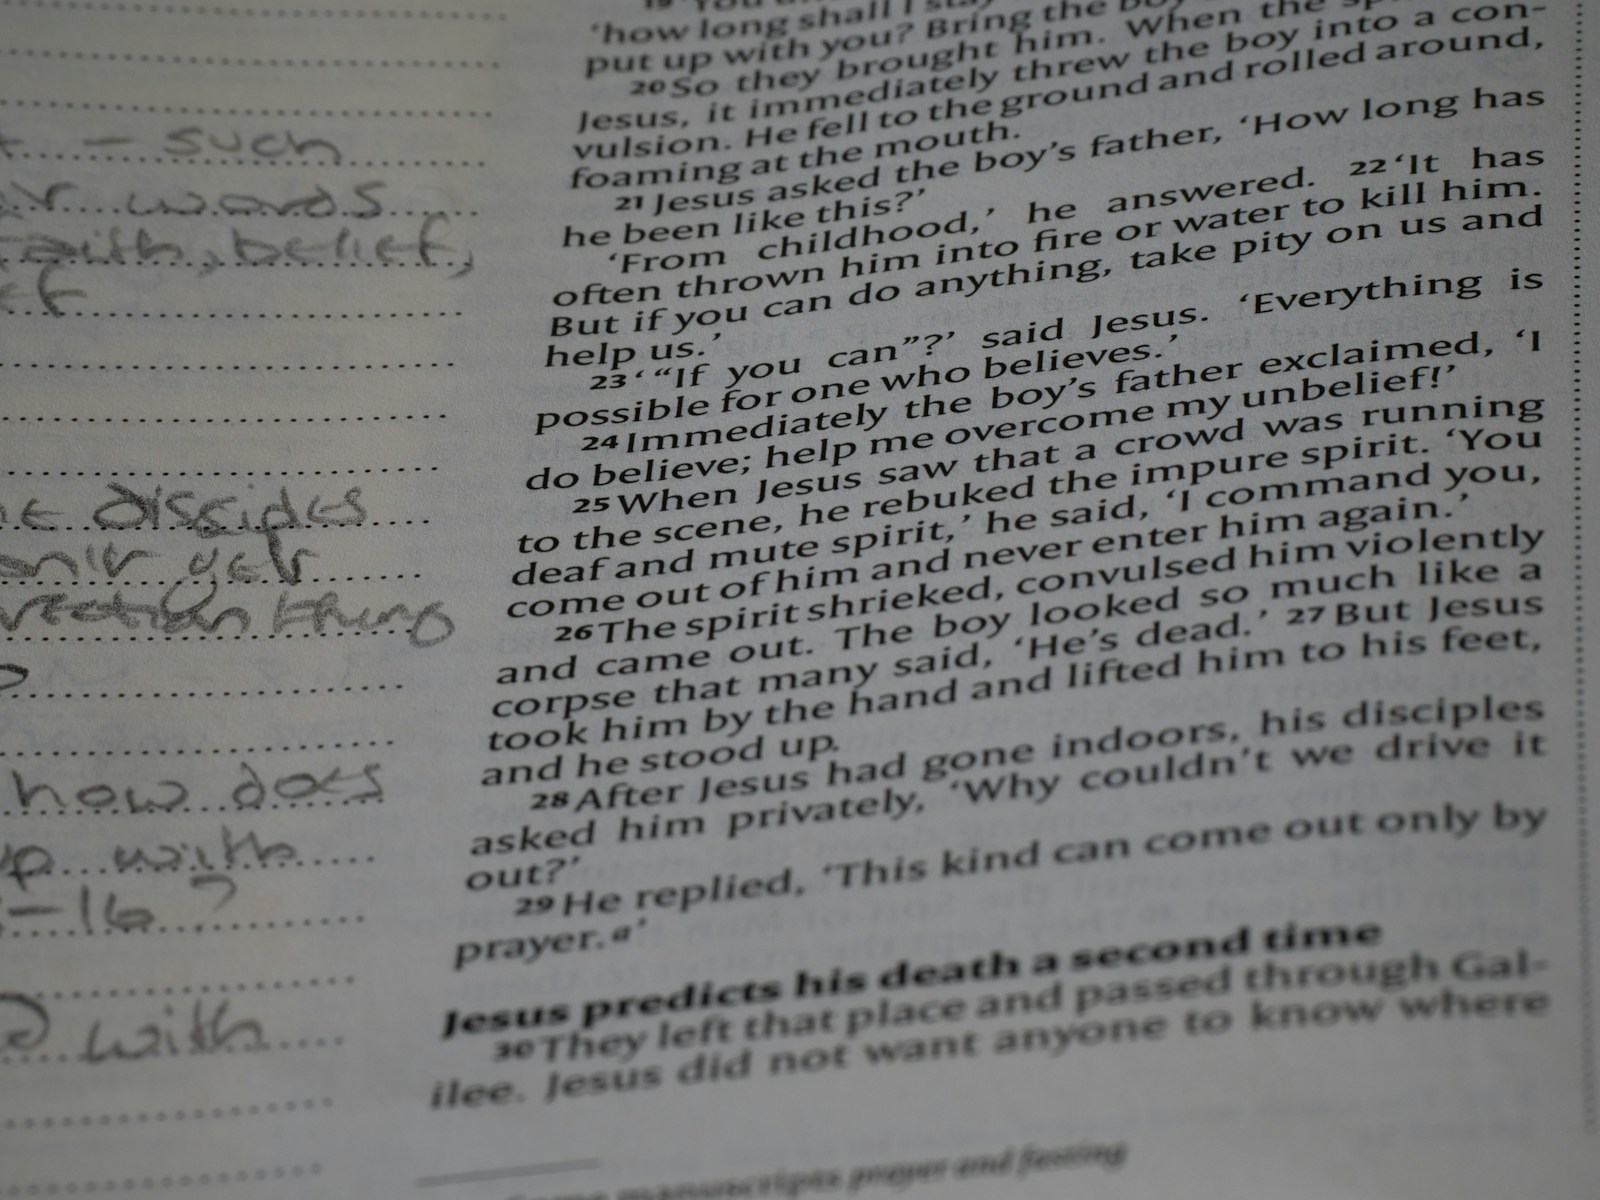 - such
words
faith, belief,
dissides
yet
thing
how does
with
-16?
with
19 'You
'how long shall I stay
put up with you? Bring the boy
20 So they brought him. When the
Jesus, it immediately threw the boy into a con-
vulsion. He fell to the ground and rolled around,
foaming at the mouth.
21 Jesus asked the boy's father, 'How long has
he been like this?'
'From childhood,' he answered. 22 'It has
often thrown him into fire or water to kill him.
But if you can do anything, take pity on us and
help us.'
23 ' “If you can”?' said Jesus. 'Everything is
possible for one who believes.'
24 Immediately the boy's father exclaimed, 'I
do believe; help me overcome my unbelief!'
25 When Jesus saw that a crowd was running
to the scene, he rebuked the impure spirit. 'You
deaf and mute spirit,' he said, 'I command you,
come out of him and never enter him again.'
26 The spirit shrieked, convulsed him violently
and came out. The boy looked so much like a
corpse that many said, 'He's dead.' 27 But Jesus
took him by the hand and lifted him to his feet,
and he stood up.
28 After Jesus had gone indoors, his disciples
asked him privately, 'Why couldn't we drive it
out?'
29 He replied, 'This kind can come out only by
prayer.a'
Jesus predicts his death a second time
30 They left that place and passed through Gal-
ilee. Jesus did not want anyone to know where
Some manuscripts prayer and fasting